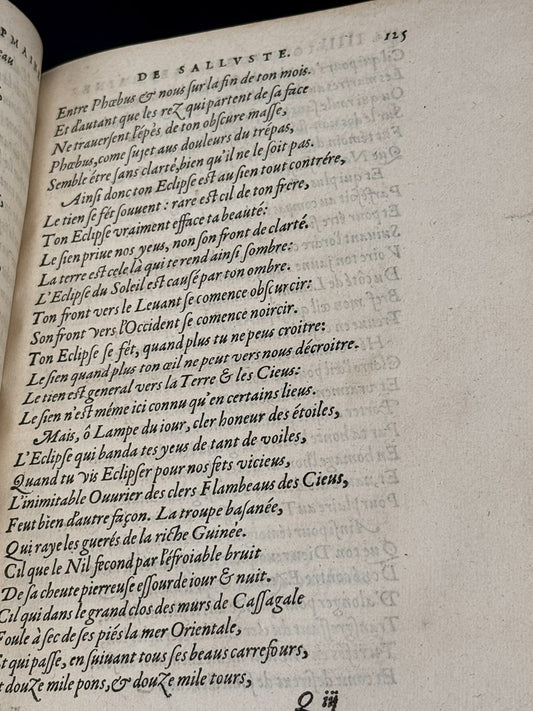 PMAIN
eau
DE SALLVSTE. 125
Entre Phœbus & nous sur la fin de ton mois.
Et d'autant que les reZ qui partent de sa face
Ne trauersent l'épés de ton obscure masse,
Phœbus, come sujet aus douleurs du trépas,
Semble étre sans clarté, bien qu'il ne le soit pas.
Ainsi donc ton Eclipse est au sien tout contrére,
Le tien se fét souuent: rare est cil de ton frere,
Ton Eclipse vraiment efface ta beauté:
Le sien priue nos yeus, non son front de clarté.
La terre est cele là qui te rend ainsi sombre:
L'Eclipse du Soleil est causé par ton ombre.
Ton front vers le Leuant se comence obscurcir:
Son front vers l'Occident se comence noircir.
Ton Eclipse se fét, quand plus tu ne peus croitre:
Le sien quand plus ton œil ne peut vers nous décroitre.
Le tien est general vers la Terre & les Cieus:
Le sien n'est même ici connu qu'en certains lieus.
Mais, ô Lampe du iour, cler honeur des étoiles,
L'Eclipse qui banda tes yeus de tant de voiles,
Quand tu vis Eclipser pour nos fets vicieus,
L'inimitable Ouurier des clers Flambeaus des Cieus,
Feut bien d'autre façon. La troupe basanée,
Qui raye les guerés de la riche Guinée.
Cil que le Nil fecond par l'éfroiable bruit
De sa cheute pierreuse essourde iour & nuit.
Cil qui dans le grand clos des murs de Cassagale
Foule à sec de ses piés la mer Orientale,
Et qui passe, en suiuant tous ses beaus carrefours,
douZe mile pons, & douZe mile tours,
Q iij